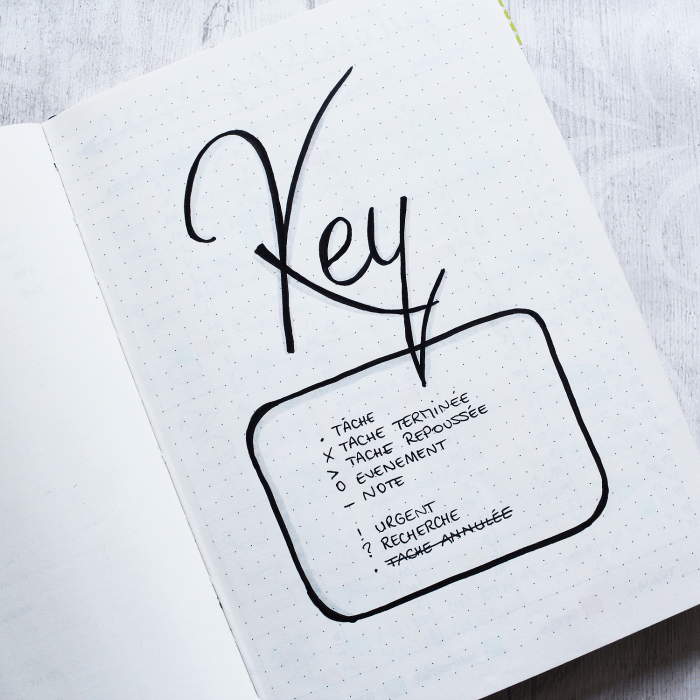 Key
. TÂCHE
X TACHE TERMINÉE
> TACHE REPOUSSÉE
O EVENEMENT
– NOTE
! URGENT
? RECHERCHE
. TACHE ANNULÉE